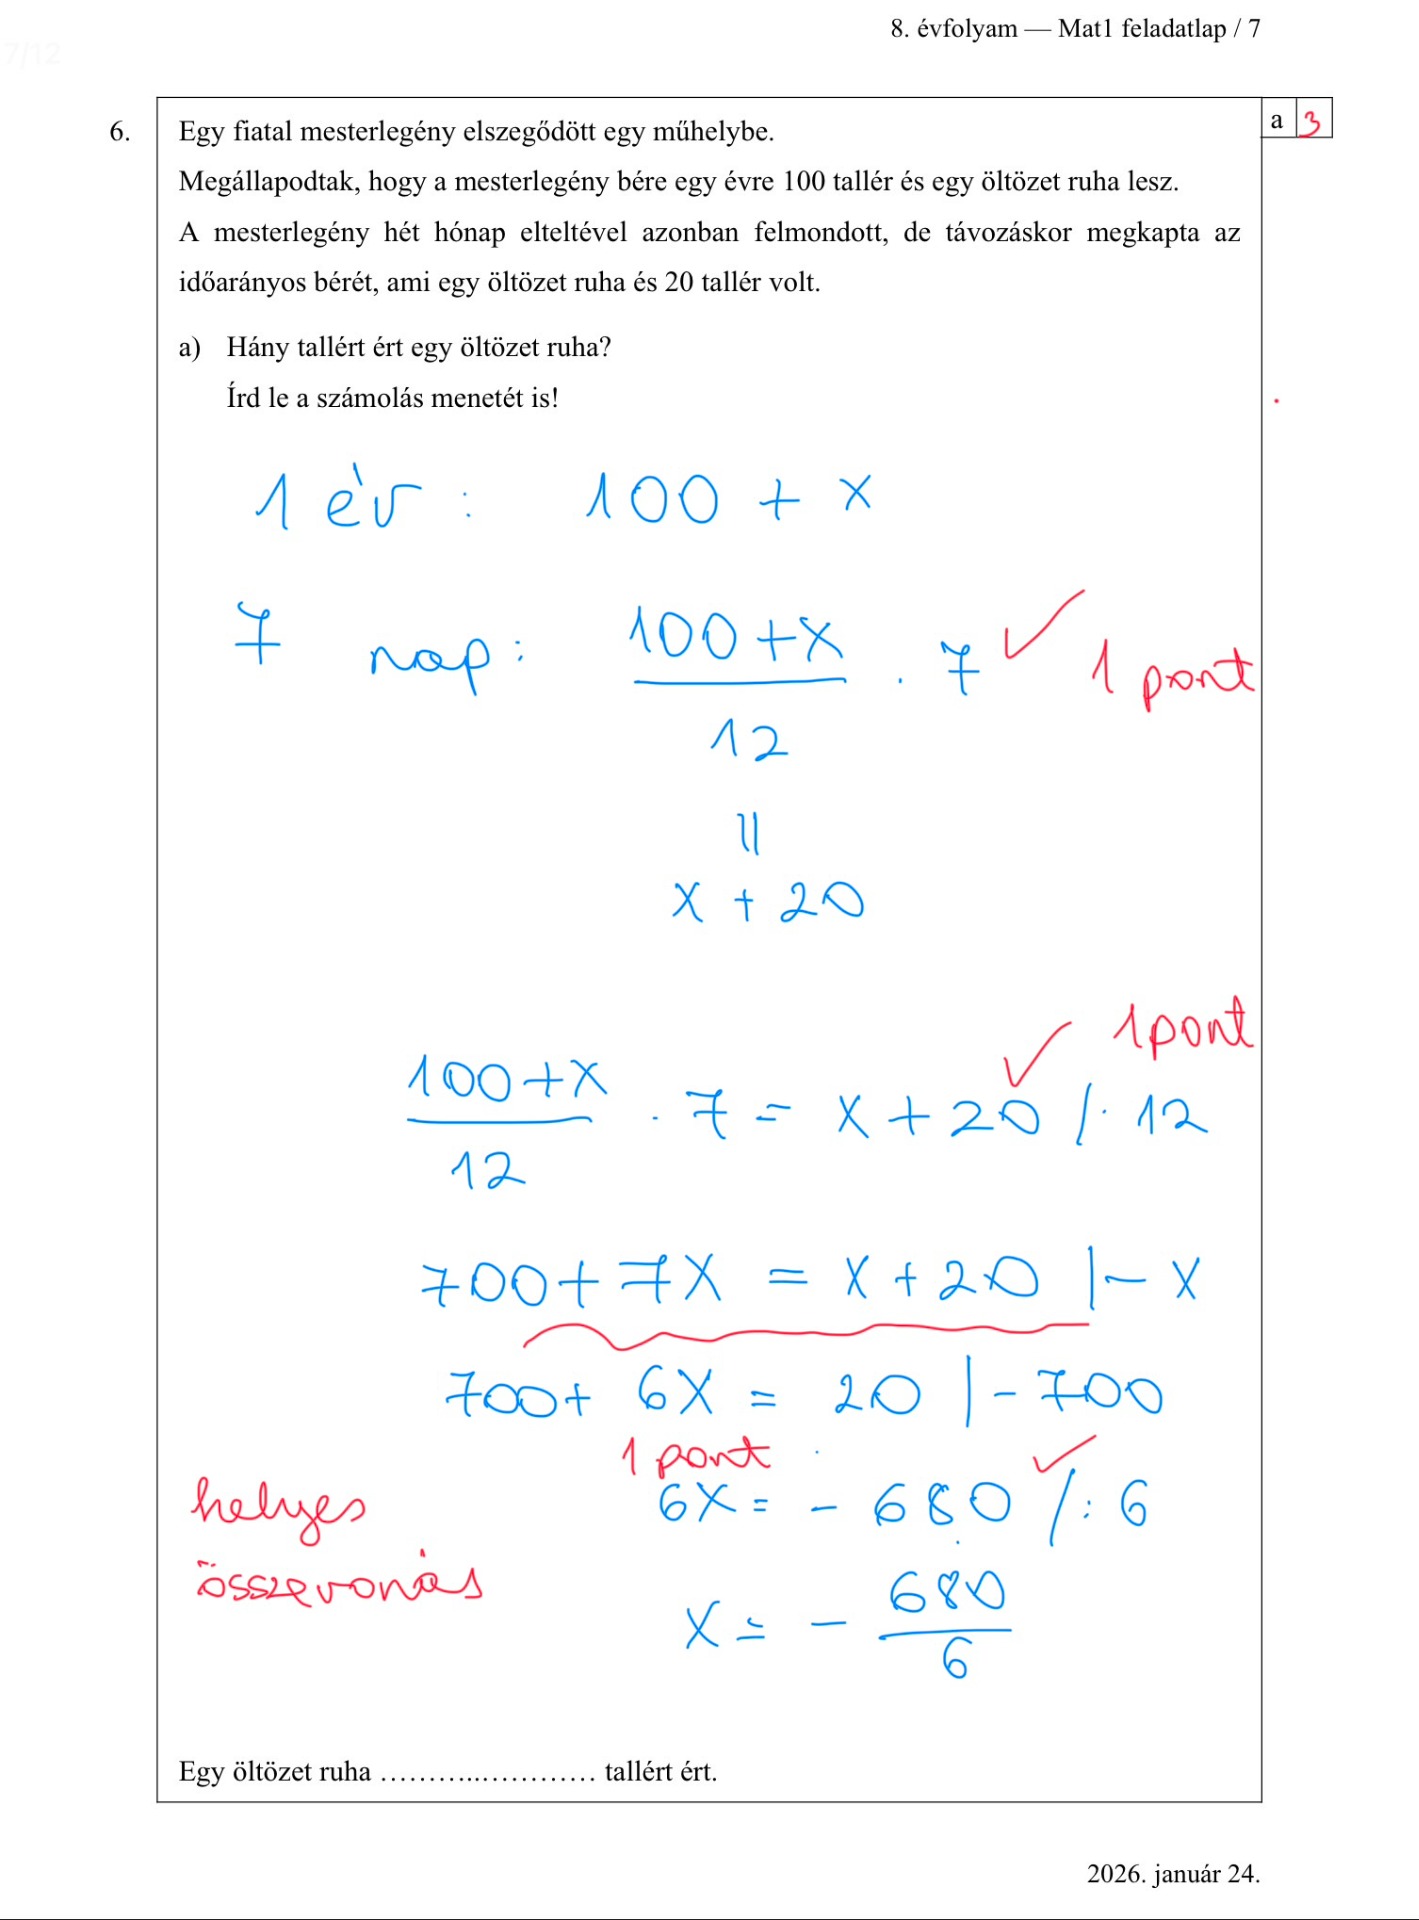 8. évfolyam — Mat1 feladatlap / 7
7/12
6. Egy fiatal mesterlegény elszegődött egy műhelybe.
a 3
Megállapodtak, hogy a mesterlegény bére egy évre 100 tallér és egy öltözet ruha lesz.
A mesterlegény hét hónap elteltével azonban felmondott, de távozáskor megkapta az
időarányos bérét, ami egy öltözet ruha és 20 tallér volt.
a) Hány tallért ért egy öltözet ruha?
Írd le a számolás menetét is!
1 év : 100 + x
7 nap : (100 + x)/12 · 7 ✓ 1 pont
||
x + 20
1 pont
(100 + x)/12 · 7 = x + 20 / · 12 ✓
700 + 7x = x + 20 | - x
700 + 6x = 20 | - 700
1 pont ✓
6x = - 680 / : 6
helyes
összevonás
x = - 680/6
Egy öltözet ruha …………………… tallért ért.
2026. január 24.